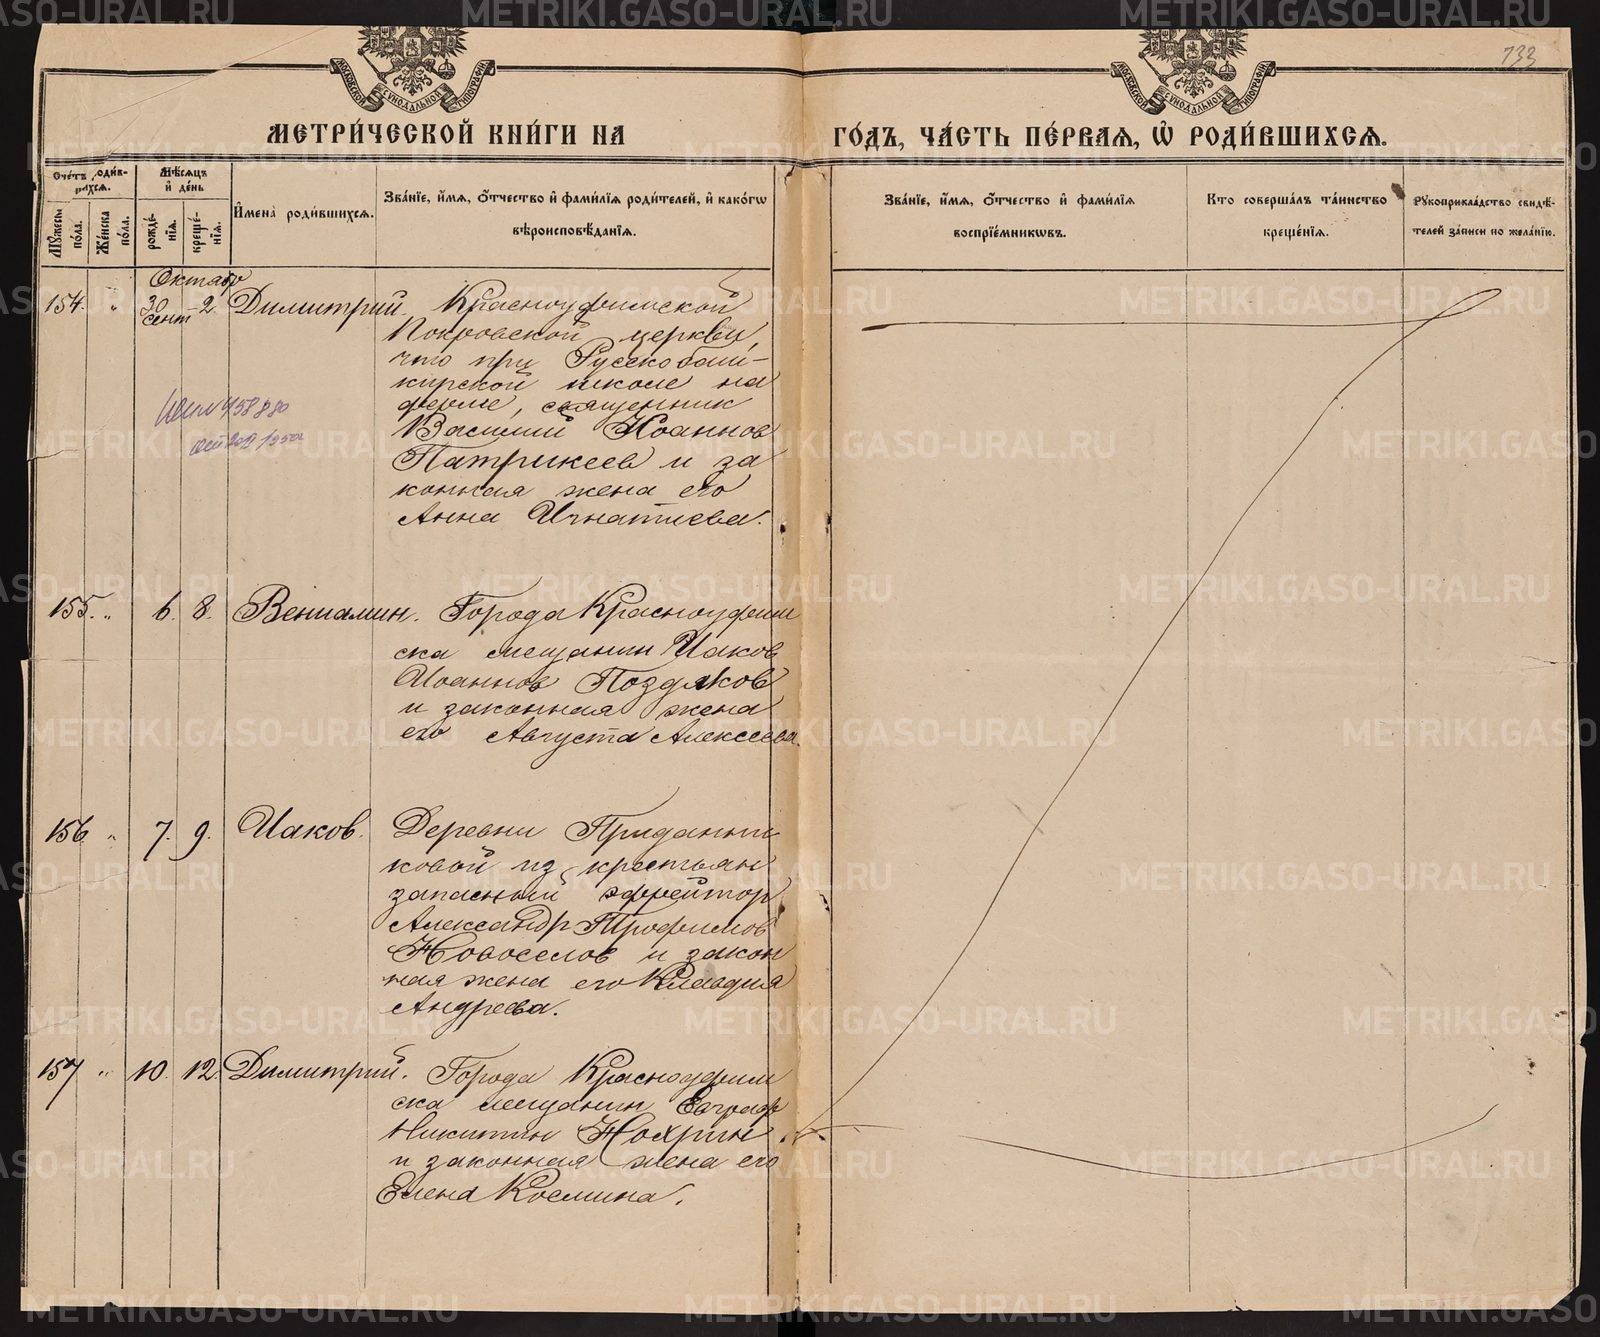 733
МОСКОВСКОЙ СѴНОДАЛЬНОЙ ТИПОГРАФІИ
МОСКОВСКОЙ СѴНОДАЛЬНОЙ ТИПОГРАФІИ
МЕТРИ́ЧЕСКОЙ КНИ́ГИ НА
ГО́ДЪ, ЧА́СТЬ ПЕ́РВАЯ, Ѡ҆ РОДИ́ВШИХСЯ.
Сче́тъ роди́в-
шихся.
Му́жеска по́ла.
Же́нска по́ла.
Мѣ́сяцъ и҆ де́нь
рожде́нїя.
креще́нїя.
И҆мена̀ роди́вшихся.
Зва́нїе, и҆́мя, ѻ҆́тчество и҆ фами́лїя роди́телей, и҆ како́гѡ
вѣроисповѣ́данїя.
Зва́нїе, и҆́мя, ѻ҆́тчество и҆ фами́лїя
воспрїе́мникѡвъ.
Кто̀ соверша́лъ та́инство
креще́нїя.
Рукоприкла́дство свидѣ́-
телей за́писи по жела́нїю.
Октябр
154. " 30 сент 2 Димитрий. Красноуфимской
Покровской церкви,
что при Русско баш-
кирской школе на
ферме, священник
Василий Иоаннов
Патрикеев и за
конная жена его
Анна Игнатиева.
155. " 6. 8. Вениамин. Города Красноуфим
ска мещанин Иаков
Иоаннов Поздяков
и законная жена
его Августа Алексеева.
156 " 7. 9. Иаков. Деревни Приданни
ковой из крестьян
запасный эфрейтор
Александр Трофимов
Новоселов и закон
ная жена его Клавдия
Андреева.
157 " 10. 12. Димитрий. Города Красноуфим
ска мещанин Евграф
Никитин Нохрин
и законная жена его
Елена Космина.
METRIKI.GASO-URAL.RU